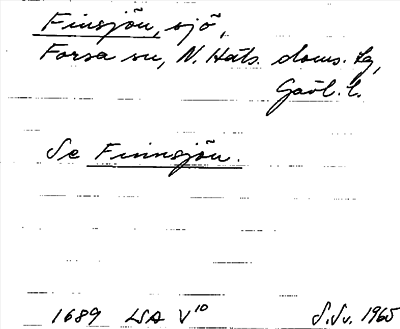 Finsjön, sjö,
Forsa sn, N. Häls. doms. lg,
Gävl. l.
Se Finnsjön.
1689 LSA V¹⁰ S.Sv. 1965